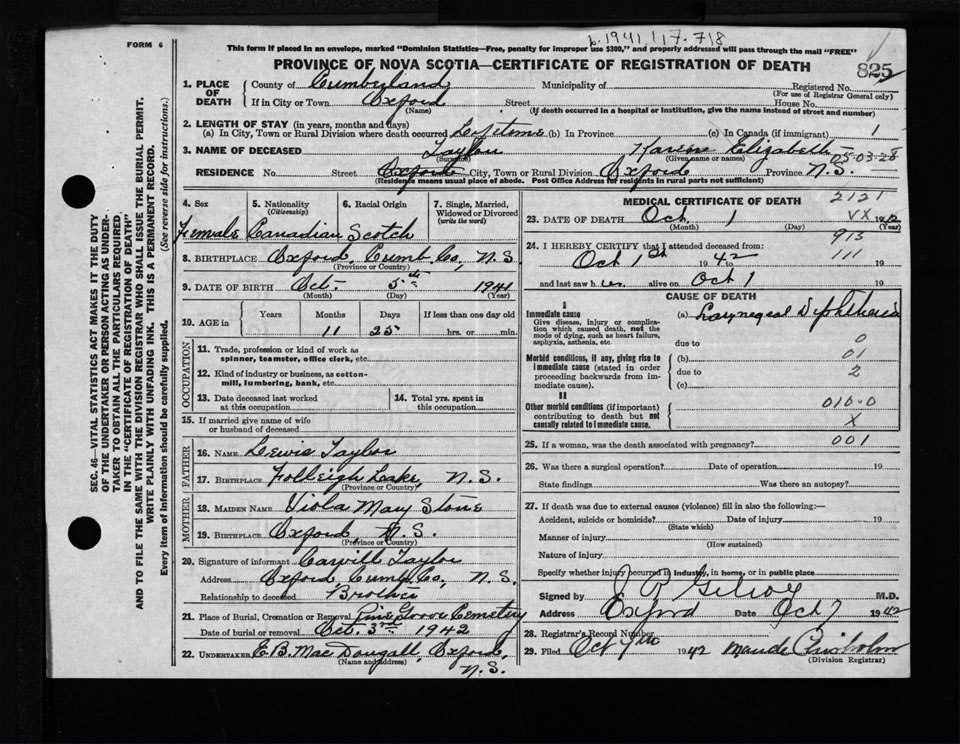 b. 1941 / 17. 718
FORM 6
This form if placed in an envelope, marked "Dominion Statistics—Free, penalty for improper use $300," and properly addressed will pass through the mail "FREE"
PROVINCE OF NOVA SCOTIA—CERTIFICATE OF REGISTRATION OF DEATH
825
1. PLACE OF DEATH County of Cumberland Municipality of Registered No.
(For use of Registrar General only)
If in City or Town Oxford Street House No.
(Name) (If death occurred in a hospital or institution, give the name instead of street and number)
2. LENGTH OF STAY (in years, months and days)
(a) In City, Town or Rural Division where death occurred Lifetime (b) In Province (c) In Canada (if immigrant) 1
3. NAME OF DECEASED Taylor Karen Elizabeth
(Surname) (Given name or names) 05-03-28
RESIDENCE No. Street Oxford City, Town or Rural Division Oxford Province N.S.
(Residence means usual place of abode. Post Office Address for residents in rural parts not sufficient)
4. Sex 5. Nationality (Citizenship) 6. Racial Origin 7. Single, Married, Widowed or Divorced (write the word)
Female Canadian Scotch
8. BIRTHPLACE Oxford, Cumb. Co, N.S.
(Province or Country)
9. DATE OF BIRTH Oct- 5th 1941
(Month) (Day) (Year)
10. AGE in Years Months Days If less than one day old
11 25 hrs. or min.
OCCUPATION
11. Trade, profession or kind of work as spinner, teamster, office clerk, etc.
12. Kind of industry or business, as cotton-mill, lumbering, bank, etc.
13. Date deceased last worked at this occupation
14. Total yrs. spent in this occupation
15. If married give name of wife or husband of deceased
FATHER
16. NAME Lewis Taylor
17. BIRTHPLACE Lake, N.S.
(Province or Country)
MOTHER
18. MAIDEN NAME Viola Mary Stone
19. BIRTHPLACE Oxford, N.S.
(Province or Country)
20. Signature of informant Carvill Taylor
Address Oxford, Cumb. Co, N.S.
Relationship to deceased Brother
21. Place of Burial, Cremation or Removal Pine Grove Cemetery
Date of burial or removal Oct. 3rd 1942
22. UNDERTAKER E.B. Mac Dougall, Oxford,
(Name and Address) N.S.
MEDICAL CERTIFICATE OF DEATH
2121
23. DATE OF DEATH Oct. 1 VX 1942
(Month) (Day) (Year)
913
24. I HEREBY CERTIFY that I attended deceased from:
Oct 1st 1942 to 111 19
and last saw her alive on Oct 1 19
CAUSE OF DEATH
I
Immediate cause (a) Laryngeal Diphtheria
Give disease, injury or complication which caused death, not the mode of dying, such as heart failure, asphyxia, asthenia, etc.
due to 0
Morbid conditions, if any, giving rise to immediate cause (stated in order proceeding backwards from immediate cause).
(b) 01
due to 2
(c)
II
Other morbid conditions (if important) contributing to death but not causally related to immediate cause.
010-0
X
25. If a woman, was the death associated with pregnancy? 001
26. Was there a surgical operation? Date of operation 19
State findings Was there an autopsy?
27. If death was due to external causes (violence) fill in also the following:—
Accident, suicide or homicide? Date of injury 19
(State which)
Manner of injury
(How sustained)
Nature of injury
Specify whether injury occurred in industry, in home, or in public place
Signed by M.D.
Address Oxford Date Oct 7 1942
28. Registrar's Record Number
29. Filed Oct 7th 1942 Maude Chisholm
(Division Registrar)
SEC. 46—VITAL STATISTICS ACT MAKES IT THE DUTY
OF THE UNDERTAKER OR PERSON ACTING AS UNDERTAKER
TO OBTAIN ALL THE PARTICULARS REQUIRED
IN THE "CERTIFICATE OF REGISTRATION OF DEATH"
AND TO FILE THE SAME WITH THE DIVISION REGISTRAR WHO SHALL ISSUE THE BURIAL PERMIT.
WRITE PLAINLY WITH UNFADING INK. THIS IS A PERMANENT RECORD.
Every item of information should be carefully supplied. (See reverse side for instructions.)